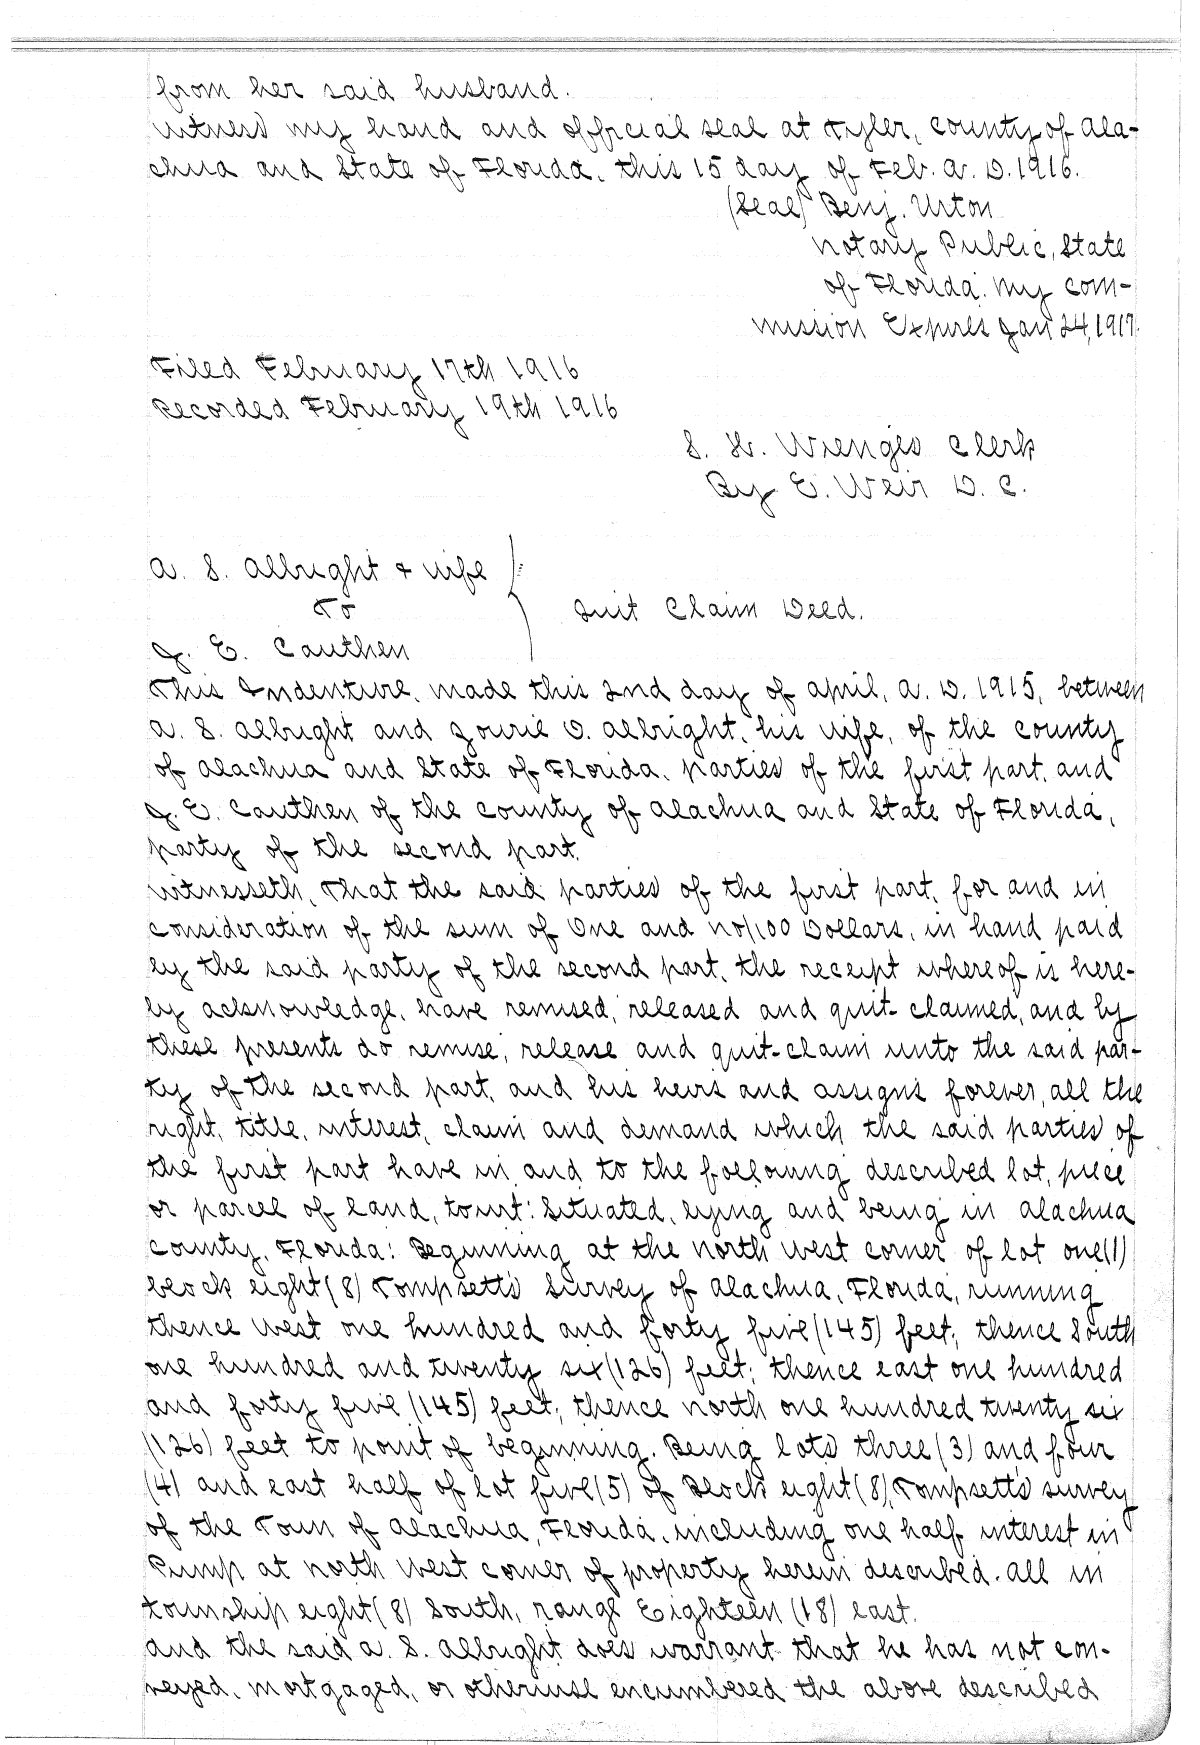 from her said husband.
Witness my hand and official seal at Tyler, County of Ala-
chua and State of Florida, this 15 day of Feb. A. D. 1916.
(Seal) Benj. Urton
Notary Public, State
of Florida. My com-
mission Expires Jan 24, 1917.
Filed February 17th 1916
Recorded February 19th 1916
S. H. Wienges Clerk
By E. Weir D. C.
A. S. Albright & wife
To
Quit Claim Deed.
J. E. Cauthen
This Indenture, made this 2nd day of April, A. D. 1915, between
A. S. Albright and Zourie O. Albright, his wife, of the County
of Alachua and State of Florida, parties of the first part, and
J. E. Cauthen of the County of Alachua and State of Florida,
party of the second part.
Witnesseth, That the said parties of the first part, for and in
consideration of the sum of One and no/100 Dollars, in hand paid
by the said party of the second part, the receipt whereof is here-
by acknowledge, have remised, released and quit-claimed, and by
these presents do remise, release and quit-claim unto the said par-
ty of the second part, and his heirs and assigns forever, all the
right, title, interest, claim and demand which the said parties of
the first part have in and to the following described lot, piece
or parcel of land, towit: Situated, lying and being in Alachua
County, Florida: Beginning at the North West corner of lot one (1)
block eight (8) Tompsett's Survey of Alachua, Florida, running
thence West one hundred and forty five (145) feet; thence South
one hundred and twenty six (126) feet; thence east one hundred
and forty five (145) feet; thence north one hundred twenty six
(126) feet to point of beginning. Being lots three (3) and four
(4) and east half of lot five (5) of Block eight (8), Tompsett's survey
of the Town of Alachua, Florida, including one half interest in
Pump at north West corner of property herein described. All in
township eight (8) South, range Eighteen (18) east.
And the said A. S. Albright does warrant that he has not con-
veyed, mortgaged, or otherwise encumbered the above described